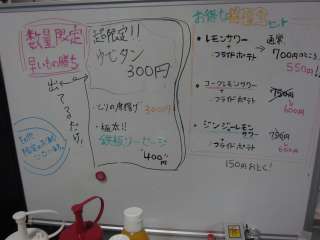 数量限定
早いもの勝ち
超限定!!
牛タン
300円
出てるだけ!
とりの唐揚げ 300円
極太!!
鉄板ソーセージ
400円
お得な
セット
・レモンサワー
+
フライドポテト
→
通常
700円のところ
550円!!
・コークレモンサワー
+
フライドポテト
750円
600円
・ジンジャーレモン
サワー
+
フライドポテト
750円
600円
150円おとく!